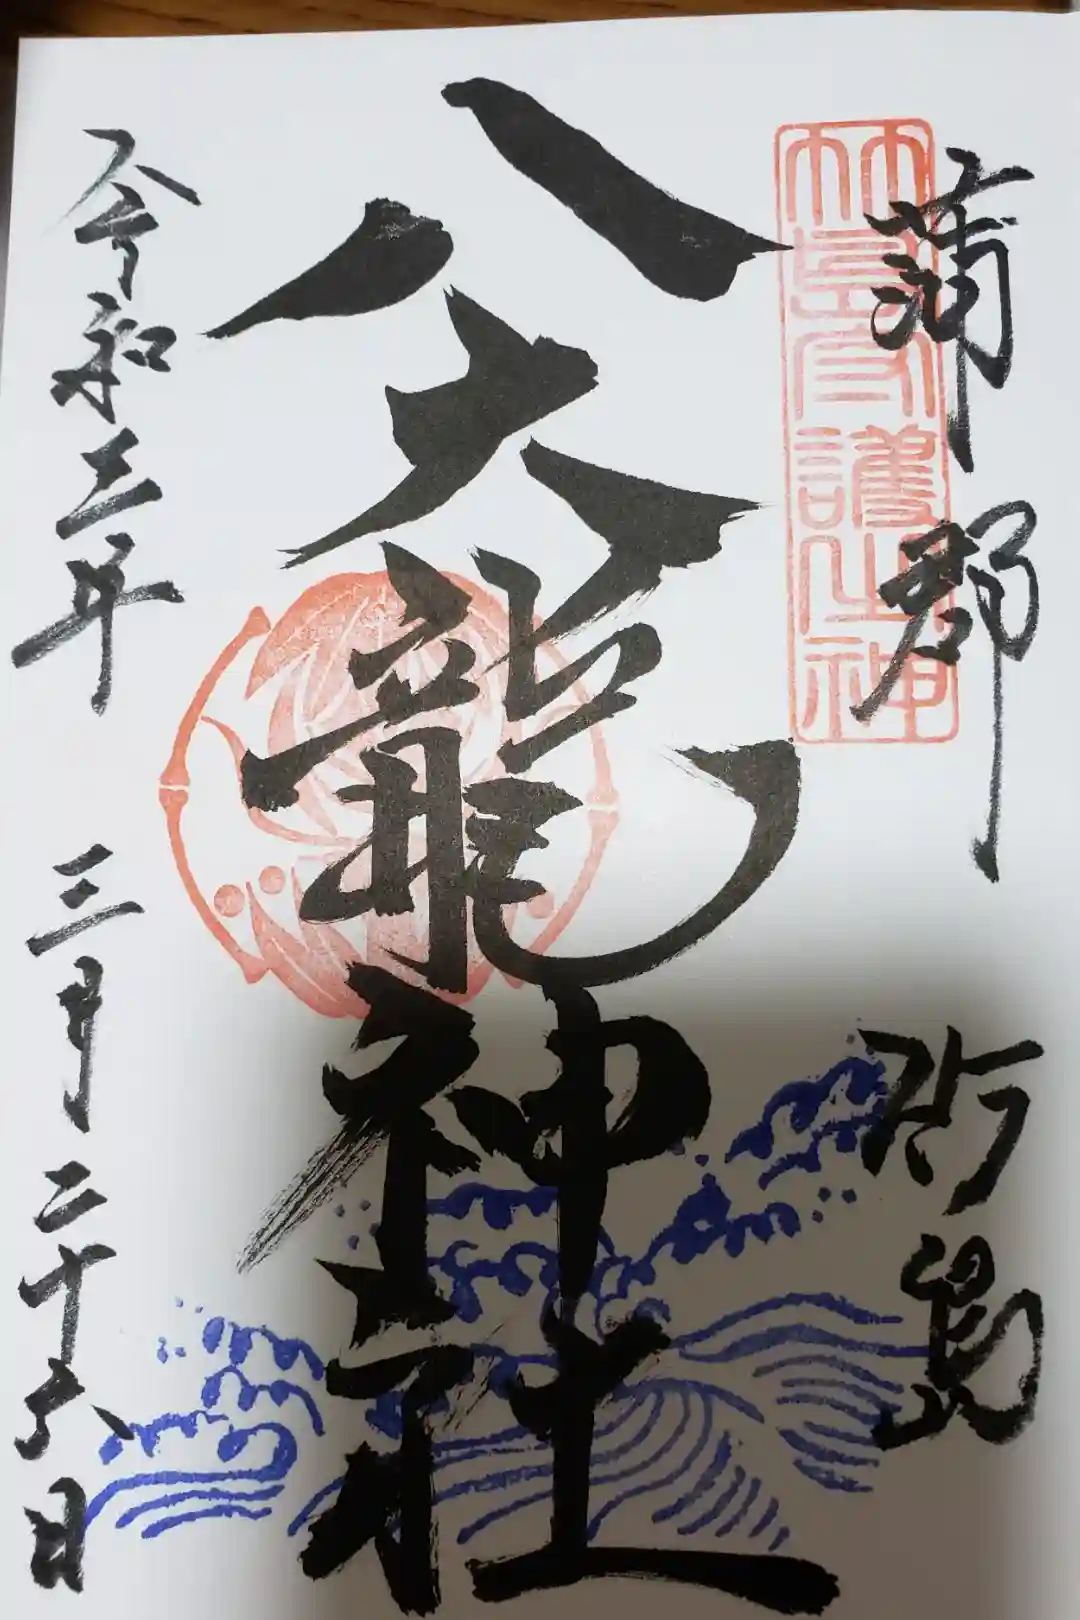 蒲郡 竹島
竹島守護之神
八大龍神社
令和三年 三月二十六日